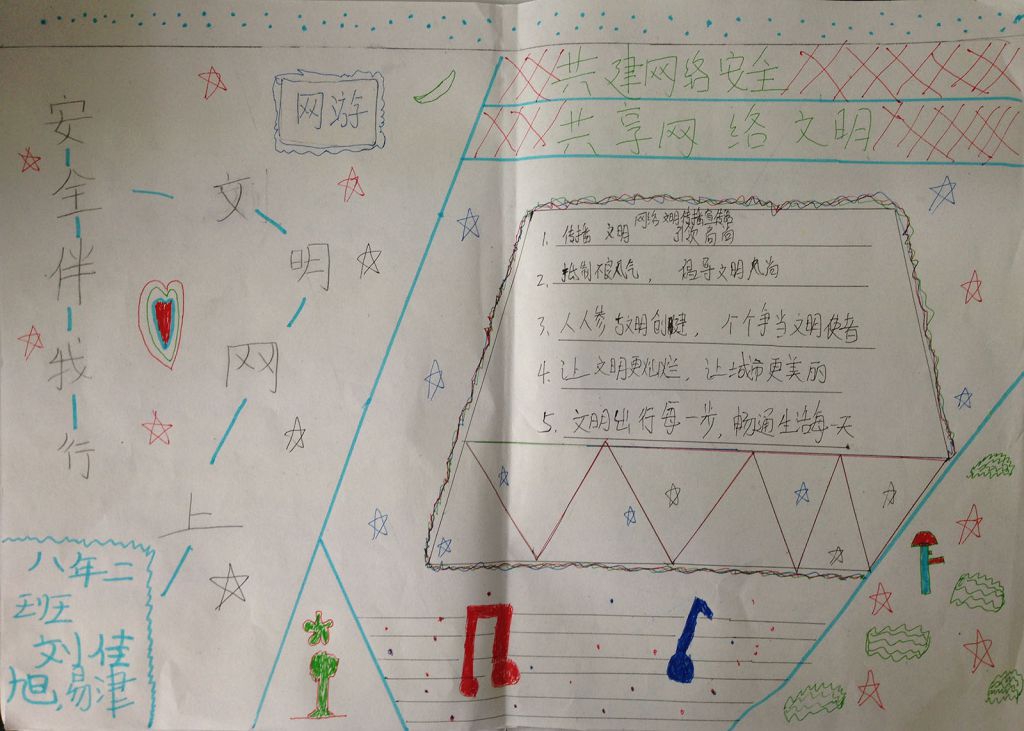 共建网络安全
共享网络文明
网游
安全伴我行
文明网上
网络文明传播宣传语
1. 传播 文明 引领高尚
2. 抵制不良风气， 倡导文明风尚
3. 人人参与文明创建， 个个争当文明使者
4. 让文明更灿烂， 让城市更美丽
5. 文明出行每一步，畅通生活每一天
八年二
班
刘佳
旭，易津